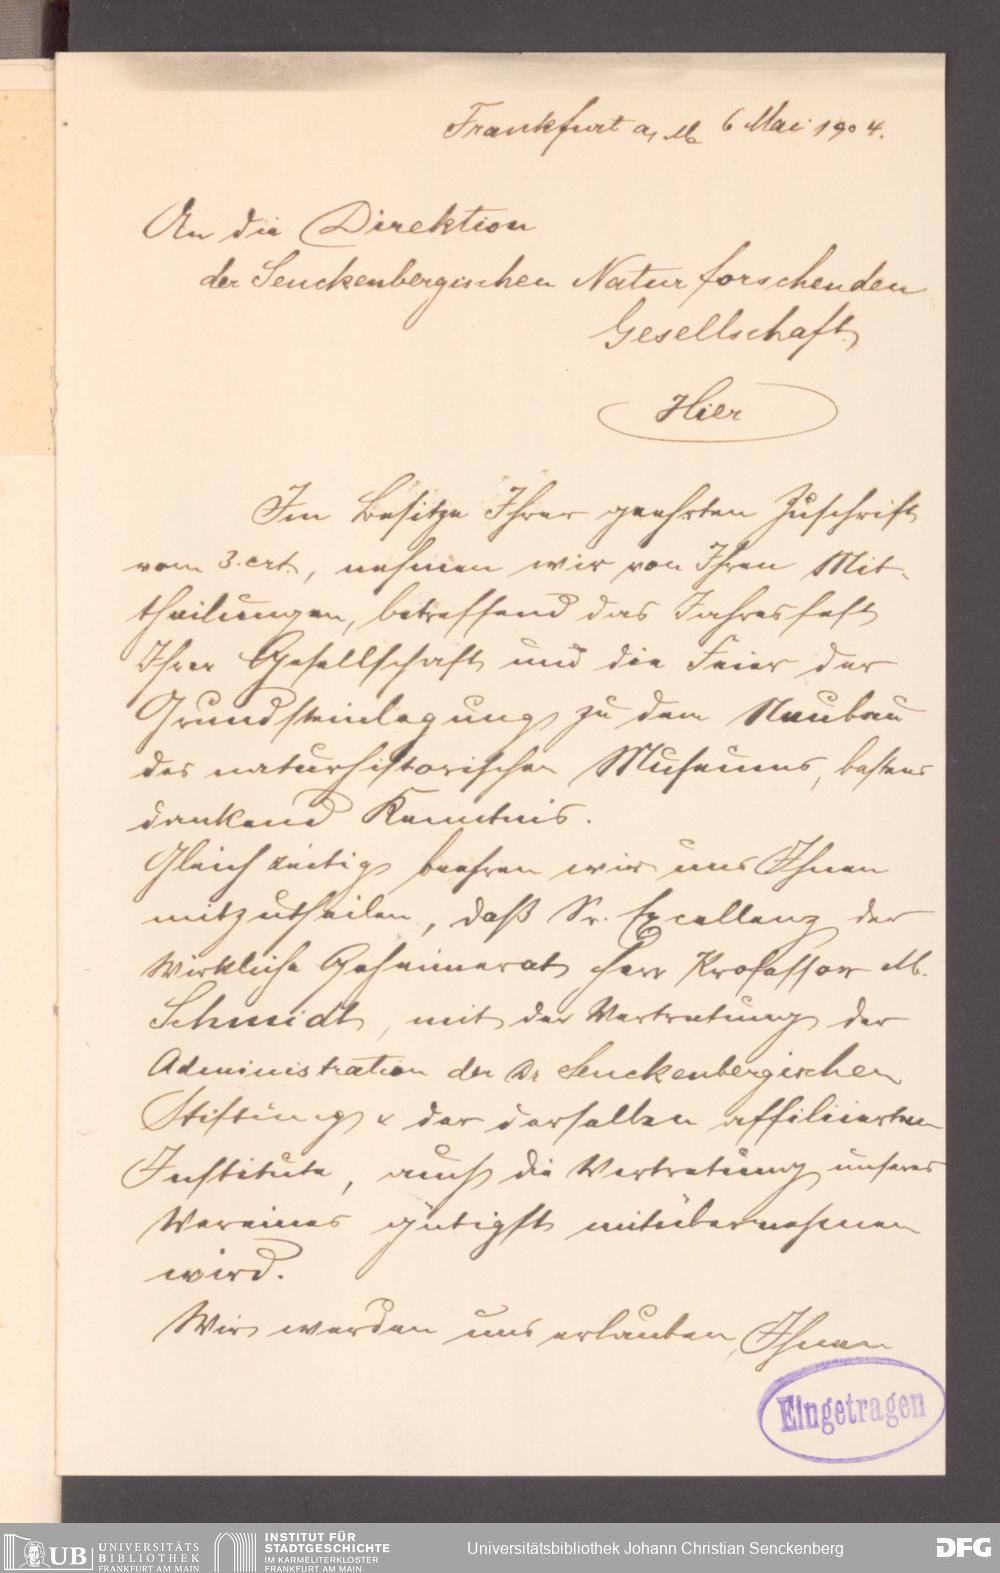 Frankfurt a/M 6 Mai 1904.
An die Direktion
der Senckenbergischen Naturforschenden
Gesellschaft
Hier
Im Besitze Ihrer geehrten Zuschrift
vom 3. crt., nehmen wir von Ihren Mit-
theilungen, betreffend das Jahresfest
Ihrer Gesellschaft und die Feier der
Grundsteinlegung zu dem Neubau
des naturhistorischen Museums, bestens
dankend Kenntnis.
Gleichzeitig beehren wir uns Ihnen
mitzutheilen, daß Sr. Excellenz der
Wirkliche Geheimerat Herr Professor M.
Schmidt, mit der Vertretung der
Administration der Dr Senckenbergischen
Stiftung & der derselben affiliierten
Institute, auch die Vertretung unseres
Vereines gütigst mitübernehmen
wird.
Wir werden uns erlauben, Ihnen
Eingetragen
UB UNIVERSITÄTS
BIBLIOTHEK
FRANKFURT AM MAIN
INSTITUT FÜR
STADTGESCHICHTE
IM KARMELITERKLOSTER
FRANKFURT AM MAIN
Universitätsbibliothek Johann Christian Senckenberg
DFG